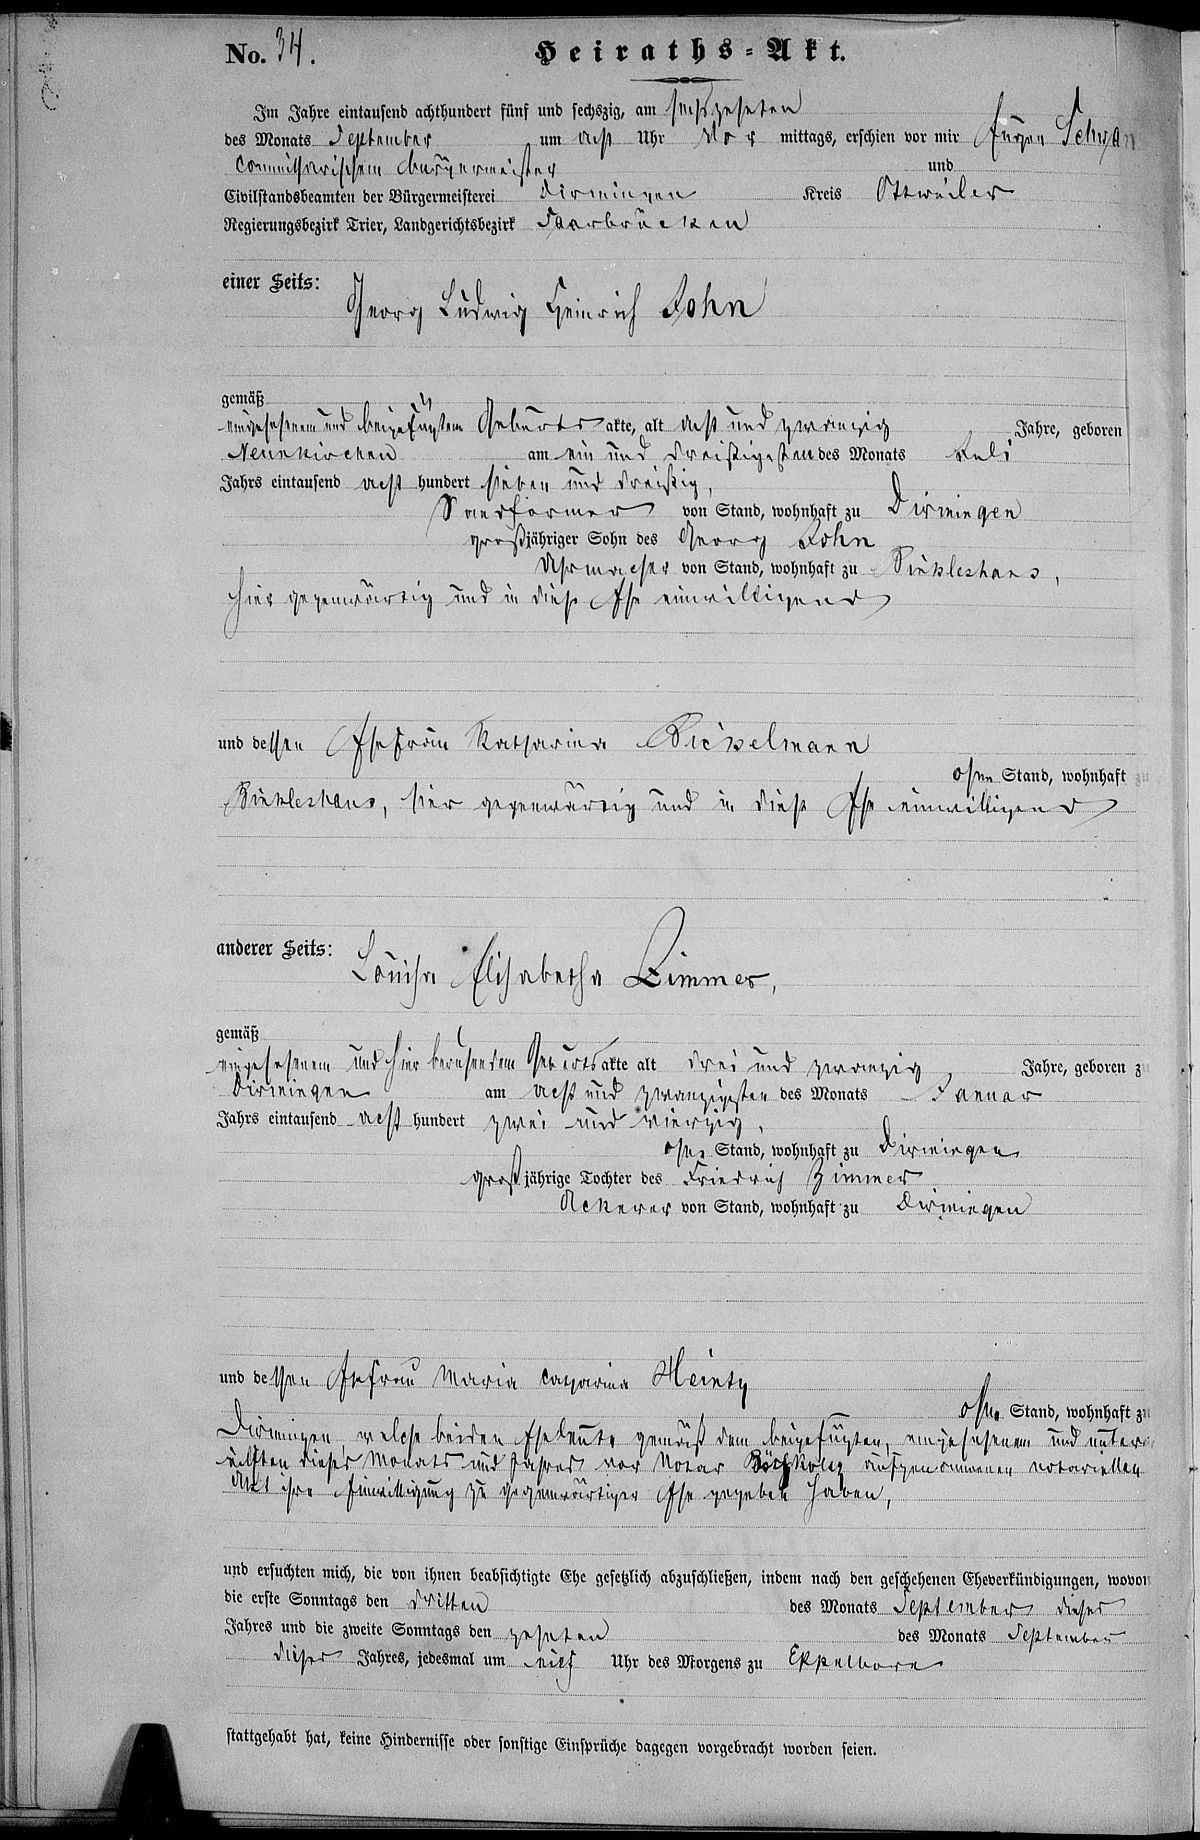 No. 34. Heiraths-Akt.
Im Jahre eintausend achthundert fünf und sechszig, am sechszehnten
des Monats September um acht Uhr Vor mittags, erschien vor mir Eugen
commissarischem Bürgermeister und
Civilstandsbeamten der Bürgermeisterei Dirmingen Kreis Ottweiler
Regierungsbezirk Trier, Landgerichtsbezirk Saarbrücken
einer Seits:
Georg Ludwig Heinrich John
gemäß
eingesehenem und beigefügtem Geburts akte, alt acht und zwanzig Jahre, geboren
Neunkirchen am ein und dreißigsten des Monats Juli
Jahrs eintausend acht hundert sieben und dreißig,
Sandformer von Stand, wohnhaft zu Dirmingen
großjähriger Sohn des Georg John
Uhrmacher von Stand, wohnhaft zu
hier gegenwärtig und in diese Ehe einwilligend
und dessen Ehefrau Katharina Bickelmann
ohne Stand, wohnhaft zu
hier gegenwärtig und in diese Ehe einwilligend
anderer Seits:
Louisa Elisabetha Zimmer,
gemäß
eingesehenem und hier beruhendem Geburts akte alt drei und zwanzig Jahre, geboren z
Dirmingen am acht und zwanzigsten des Monats Januar
Jahrs eintausend acht hundert zwei und vierzig,
ohne Stand, wohnhaft zu Dirmingen
großjährige Tochter des Friedrich Zimmer
Ackerer von Stand, wohnhaft zu Dirmingen
und dessen Ehefrau Maria Catharina Heintz
ohne Stand, wohnhaft zu
Dirmingen welche beiden Eheleute gemäß dem beigefügten, eingesehenem und unterm
elften dieses Monats und Jahres vor Notar aufgenommenen notariellen
Akt ihre Einwilligung zu gegenwärtiger Ehe gegeben haben,
und ersuchten mich, die von ihnen beabsichtigte Ehe gesetzlich abzuschließen, indem nach den geschehenen Eheverkündigungen, wovon
die erste Sonntags den dritten des Monats September dieses
Jahres und die zweite Sonntags den zehnten des Monats September
dieses Jahres, jedesmal um Uhr des Morgens zu Eppelborn
stattgehabt hat, keine Hindernisse oder sonstige Einsprüche dagegen vorgebracht worden seien.